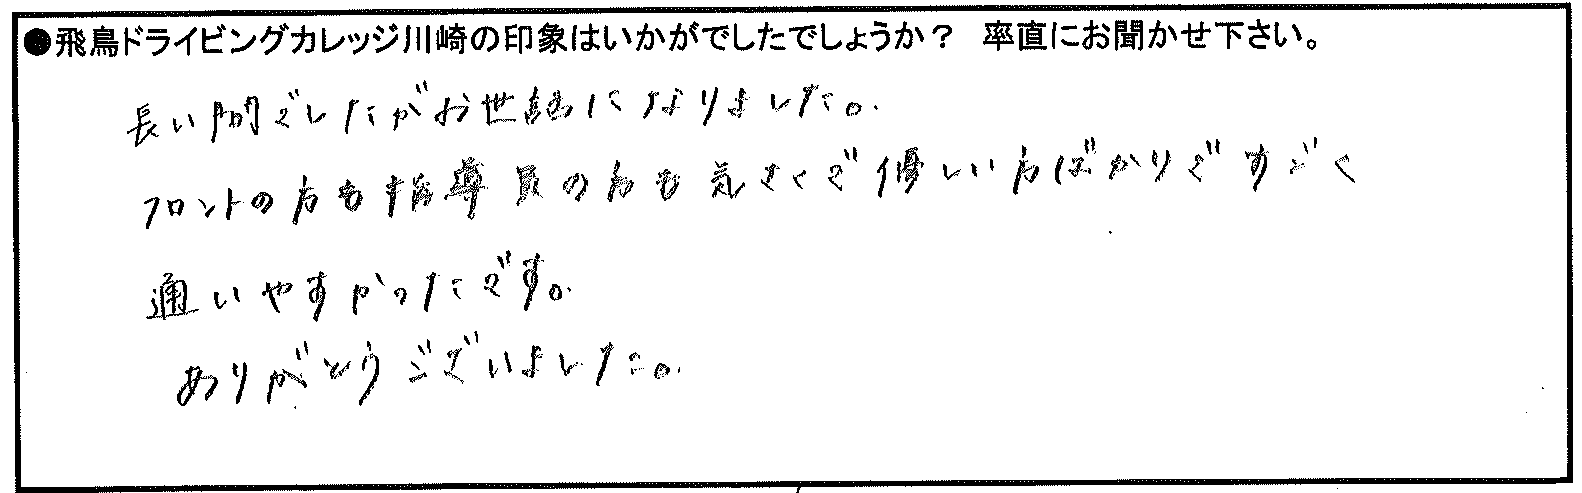 ●飛鳥ドライビングカレッジ川崎の印象はいかがでしたでしょうか？ 率直にお聞かせ下さい。
長い間でしたがお世話になりました。
フロントの方も指導員の方も気さくで優しい方ばかりですごく
通いやすかったです。
ありがとうございました。